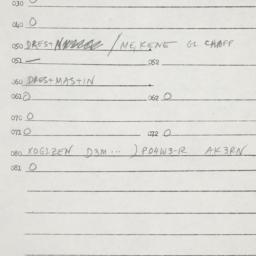 030 O
040 O
050 DREST / MEKENE GL CHAFF
051 — 052
060 DREST MASTIN
061 O 062 O
070 O
071 O 072 O
080 XOGIZEN D3M... ) P04W3-R AK3RN
081 O